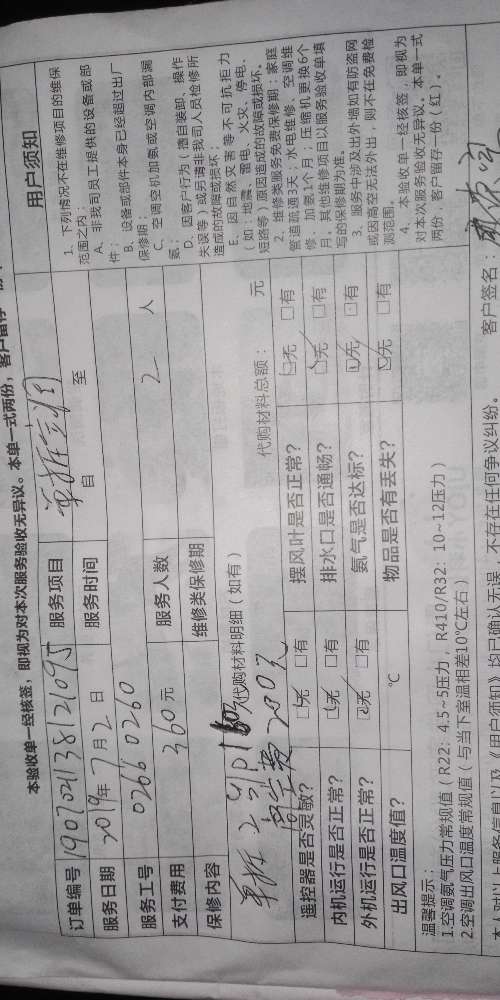 本验收单一经核签，即视为对本次服务验收无异议。本单一式两份，客户留存一份
订单编号 190702113812109 服务项目
服务日期 2019年7月2日 服务时间 自 至
服务工号 02660260
支付费用 360元 服务人数 2 人
保修内容 维修类保修期
代购材料明细（如有） 代购材料总额： 元
单拆2台1P 160元
高空费200元
遥控器是否灵敏？ 无 有 摆风叶是否正常？ 无 有
内机运行是否正常？ 无 有 排水口是否通畅？ 无 有
外机运行是否正常？ 无 有 氨气是否达标？ 无 有
出风口温度值？ ℃ 物品是否有丢失？ 无 有
用户须知
1、下列情况不在维修项目的维保
范围之内：
A、非我司员工提供的设备或部
件；
B、设备或部件本身已经超过出厂
保修期；
C、空调空机加氨或空调内部漏
氨；
D、因客户行为（擅自装卸、操作
失误等）或另请非我司人员检修所
造成的故障或损坏；
E、因自然灾害等不可抗拒力
（如：地震、雷电、火灾、停电、
短路等）原因造成的故障或损坏。
2、维修类服务免费保修期：家庭
管道疏通3天；水电维修、空调维
修、加氨1个月；压缩机更换6个
月。其他维修项目以服务验收单填
写的保修期为准。
3、服务中涉及出外墙如有防盗网
或因高空无法外出，则不在免费检
测范围。
4、本验收单一经核签，即视为
对本次服务验收无异议。本单一式
两份，客户留存一份（红）。
温馨提示：
1.空调氨气压力常规值（R22：4.5~5压力，R410/R32：10~12压力）
2.空调出风口温度常规值（与当下室温相差10℃左右）
本人对以上服务信息以及《用户须知》均已确认无误，不存在任何争议纠纷。 客户签名：